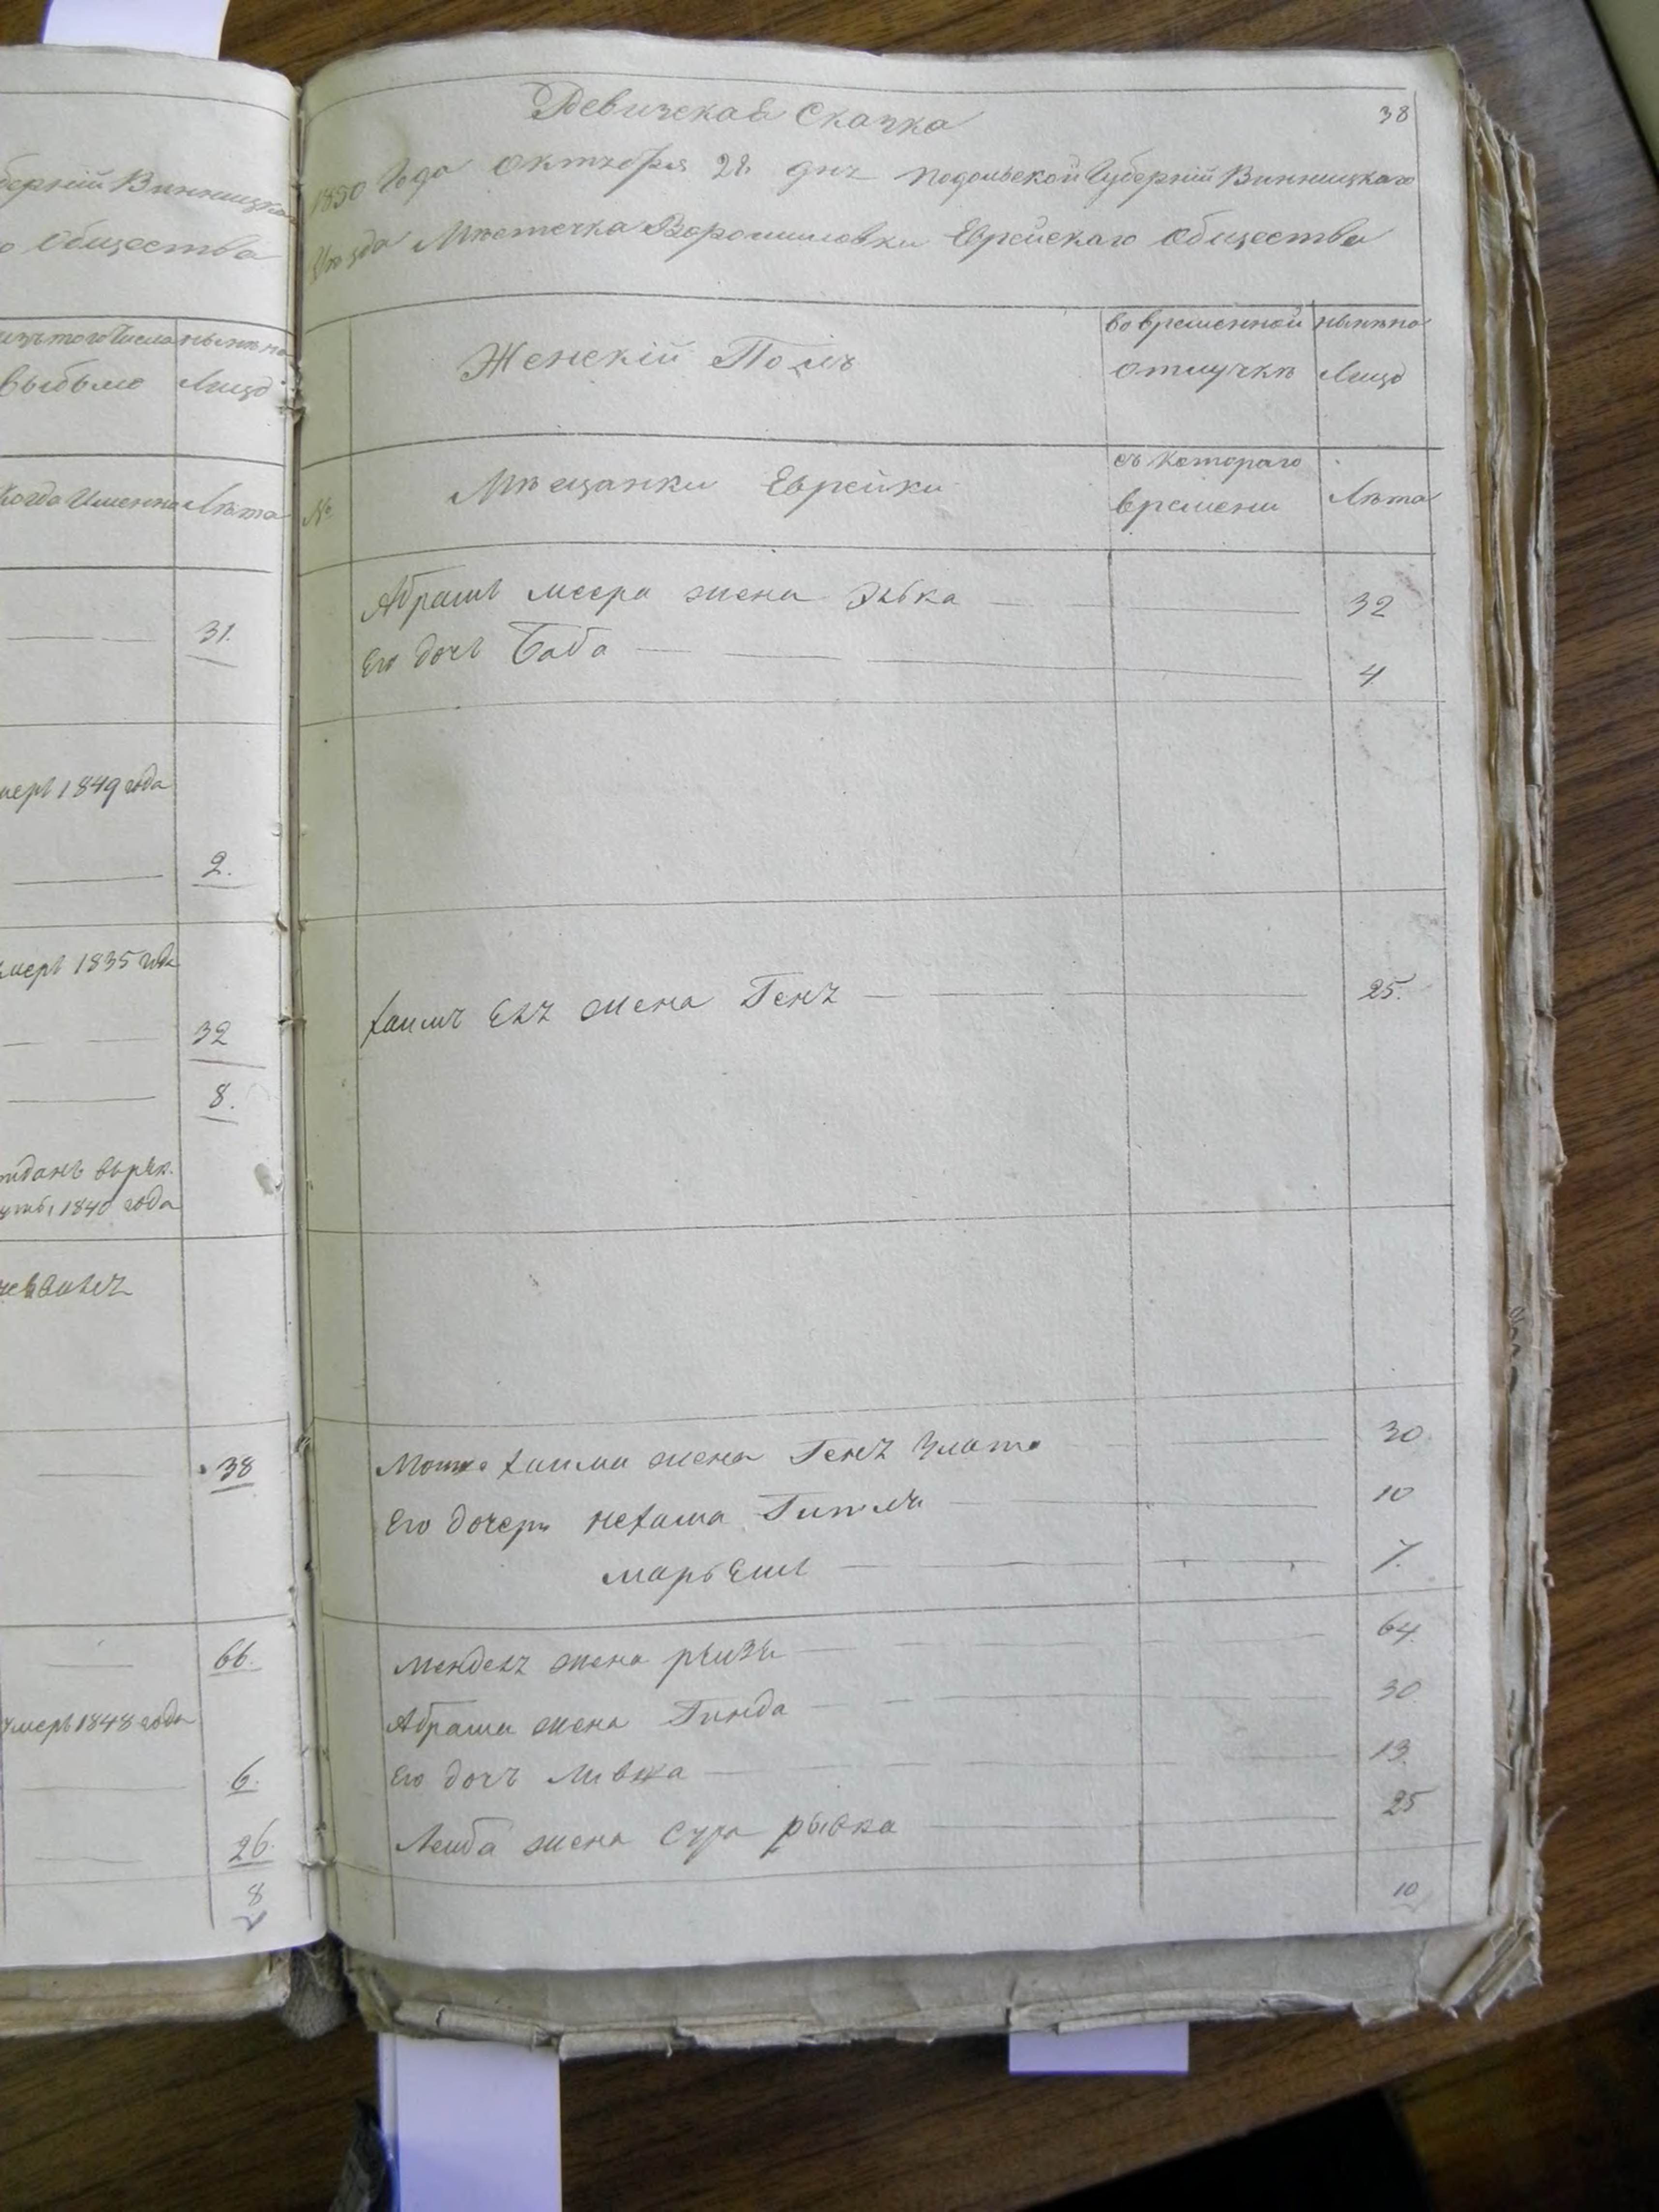 берніи Винницка
о общества
изъ того числа ныннѣ
выбыло Лицо
когда именно Лѣта
31.
мерѣ 1849 года
2.
мерѣ 1835 года
32
8.
1840 года
38
66.
умерь 1848 года
6.
26.
8
38
Ревизская Сказка
1850 года октября 28 дня Подольской Губерніи Винницкаго
Уѣзда Мѣстечка Ворошиловки Еврейскаго общества
Женскій Полъ
во временной
отлучкѣ
ныннѣ
Лицо
№
Мѣщанки Еврейки
съ котораго
времени
Лѣта
Абрамъ меера жена Эвка 32
Его дочь Баба 4
хаимъ Елъ жена Геня 25.
Мошко хаима жена Геня Злата 30
Его дочери нехама Гитля 10
марьемъ 7.
Мендель жена рыизи 64.
Абрама жена Гинда 30
Его дочь Ливка 13.
Лейба жена Сура рывка 25
10